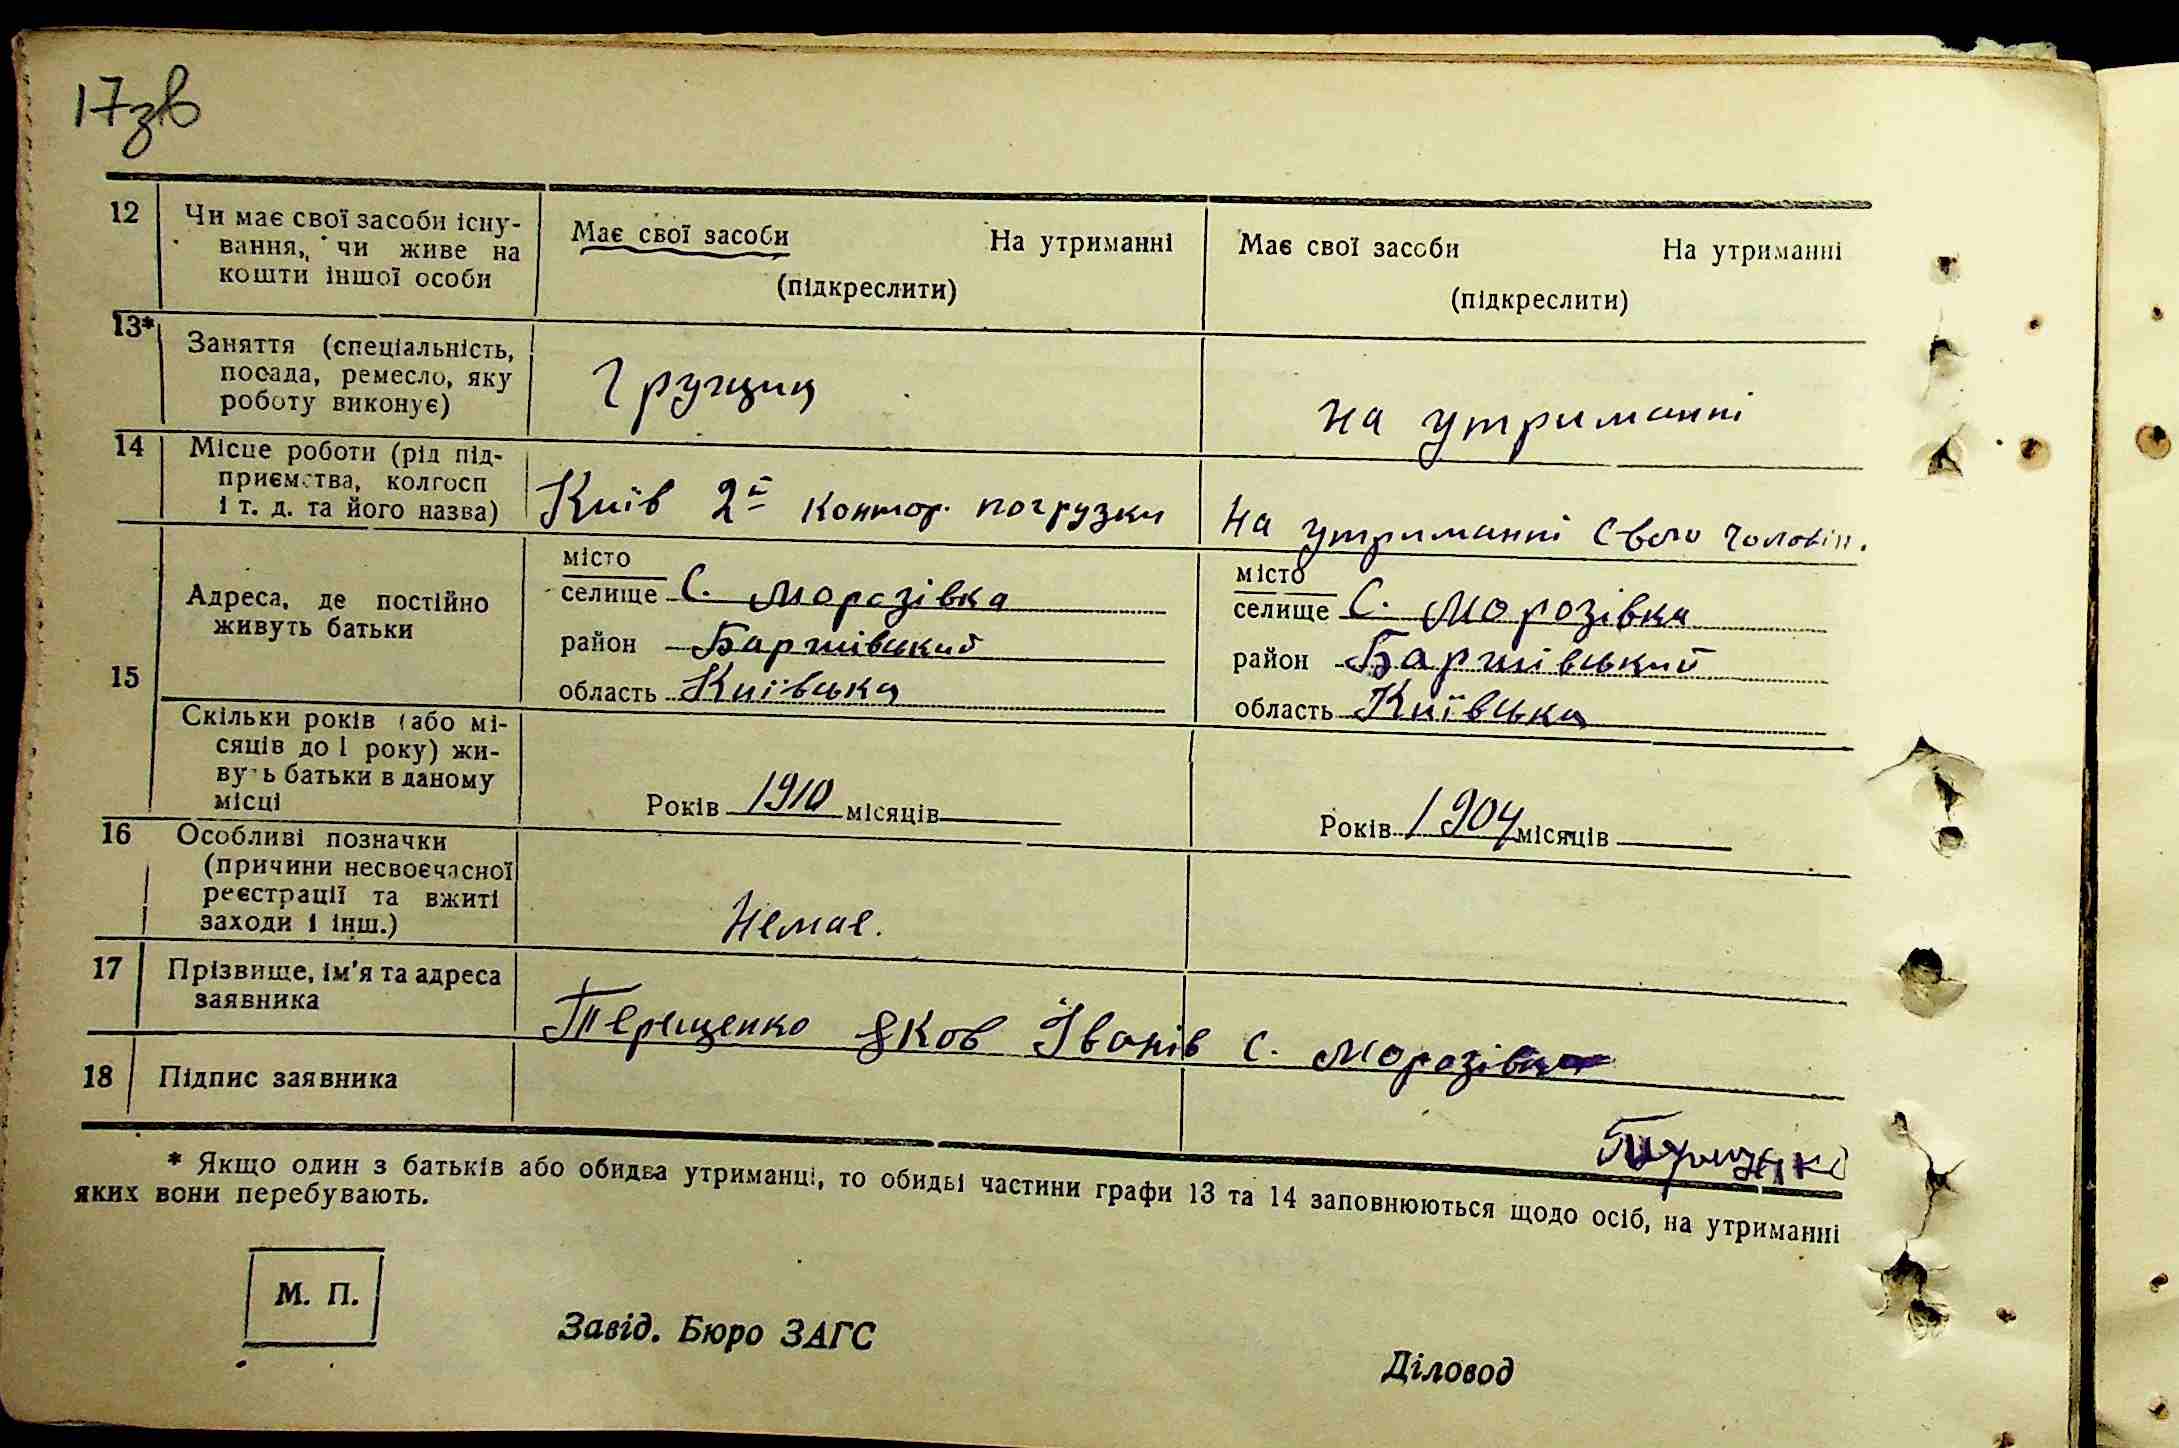 17зв
12 Чи має свої засоби існу-
вання, чи живе на
кошти іншої особи
Має свої засоби На утриманні
(підкреслити)
Має свої засоби На утриманні
(підкреслити)
13* Заняття (спеціальність,
посада, ремесло, яку
роботу виконує)
Грущик
на утриманні
14 Місце роботи (рід під-
приємства, колгосп
і т. д. та його назва)
Київ 2й контор. погрузки
На утриманні свого чоловік.
15 Адреса, де постійно
живуть батьки
місто
селище С. Морозівка
район Баришівський
область Київська
місто
селище С. Морозівка
район Баришівський
область Київська
Скільки років (або мі-
сяців до 1 року) жи-
вуть батьки в даному
місці
Років 1910 місяців
Років 1904 місяців
16 Особливі позначки
(причини несвоєчасної
реєстрації та вжиті
заходи і інш.)
Немає.
17 Прізвище, ім'я та адреса
заявника
Терещенко Яков Іванів с. Морозівка
18 Підпис заявника
* Якщо один з батьків або обидва утриманці, то обидві частини графи 13 та 14 заповнюються щодо осіб, на утриманні
яких вони перебувають.
М. П.
Завід. Бюро ЗАГС
Діловод